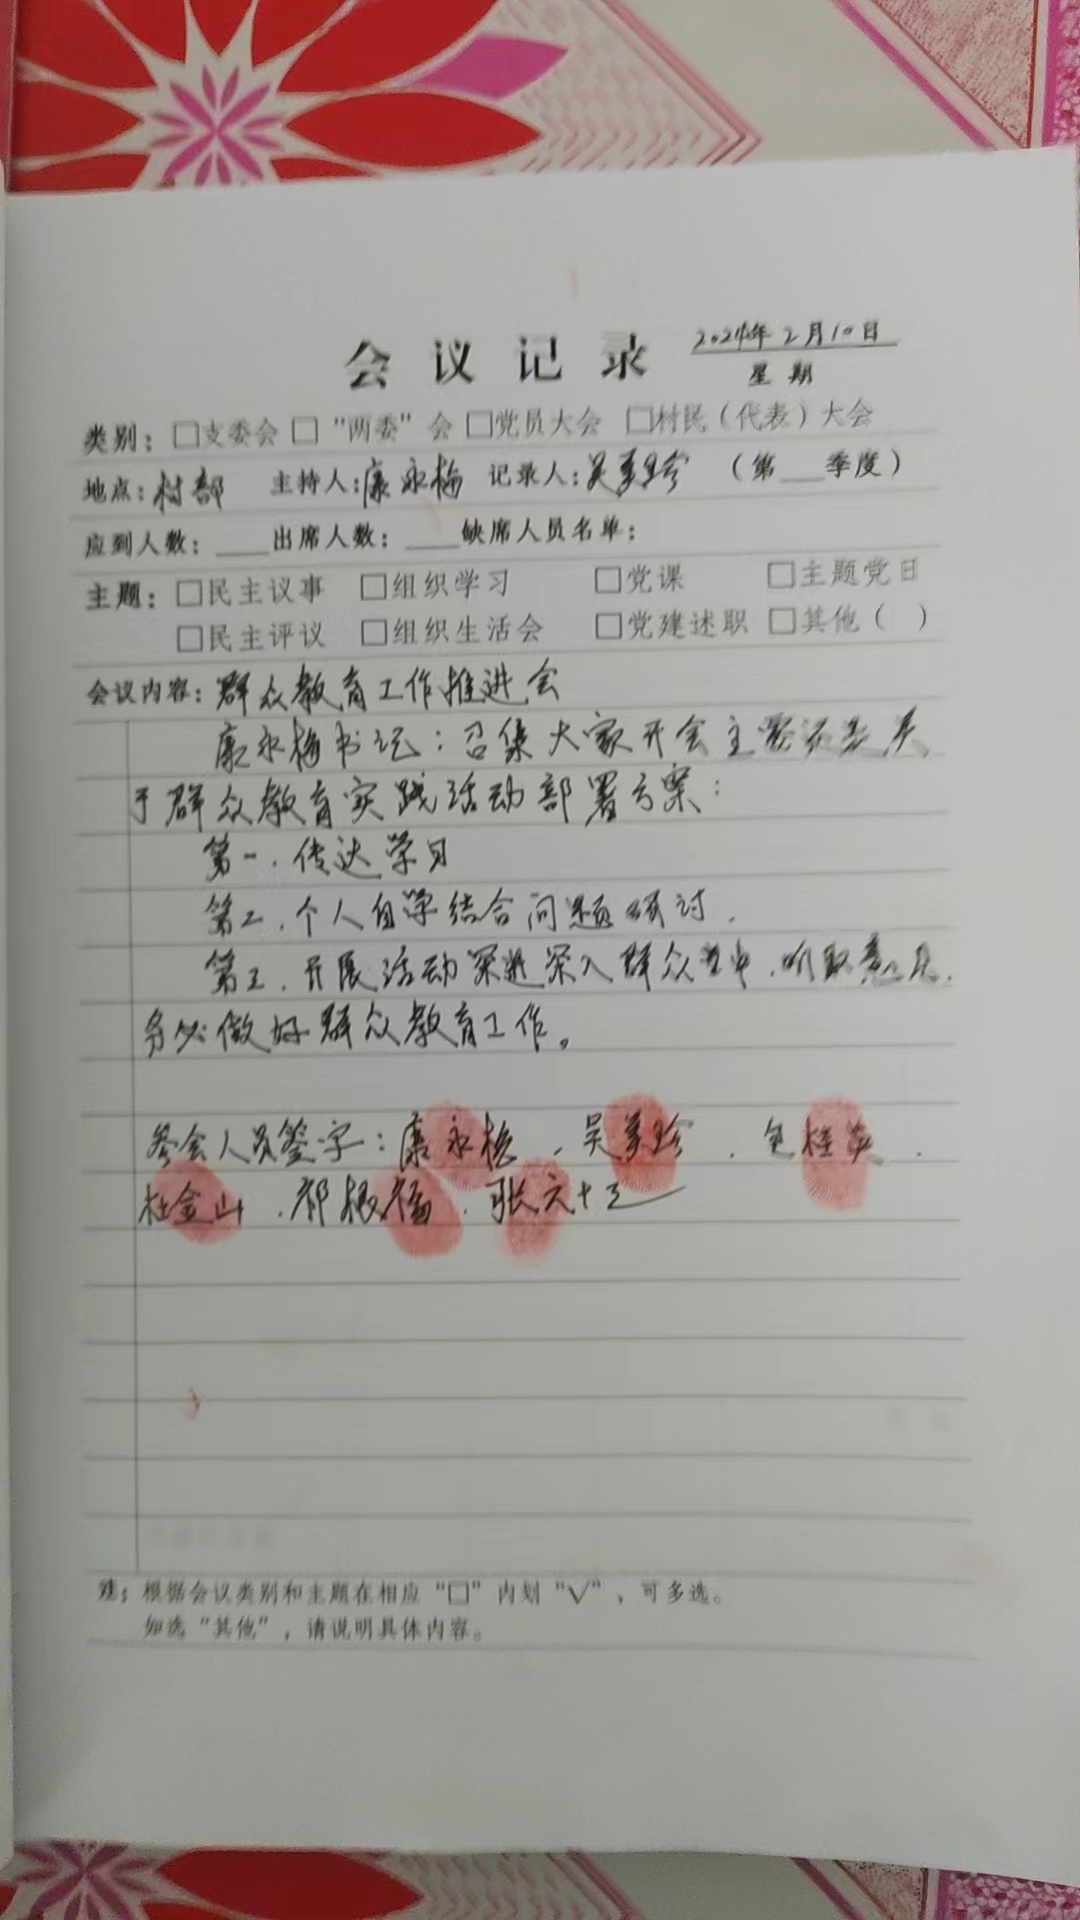 会议记录 2024年2月10日
星期
类别：□支委会 □“两委”会 □党员大会 □村民（代表）大会
地点：村部 主持人：康永梅 记录人：吴美珍 （第__季度）
应到人数：____出席人数：____缺席人员名单：
主题：□民主议事 □组织学习 □党课 □主题党日
□民主评议 □组织生活会 □党建述职 □其他（ ）
会议内容：群众教育工作推进会
康永梅书记：召集大家开会主要还是关
于群众教育实践活动部署方案：
第一．传达学习
第二．个人自学结合问题研讨．
第三．开展活动深进深入群众当中．听取意见．
务必做好群众教育工作。
参会人员签字：康永梅、吴美珍、包桂英、
杜金山、祁根福、张六十三
注：根据会议类别和主题在相应“□”内划“√”，可多选。
如选“其他”，请说明具体内容。